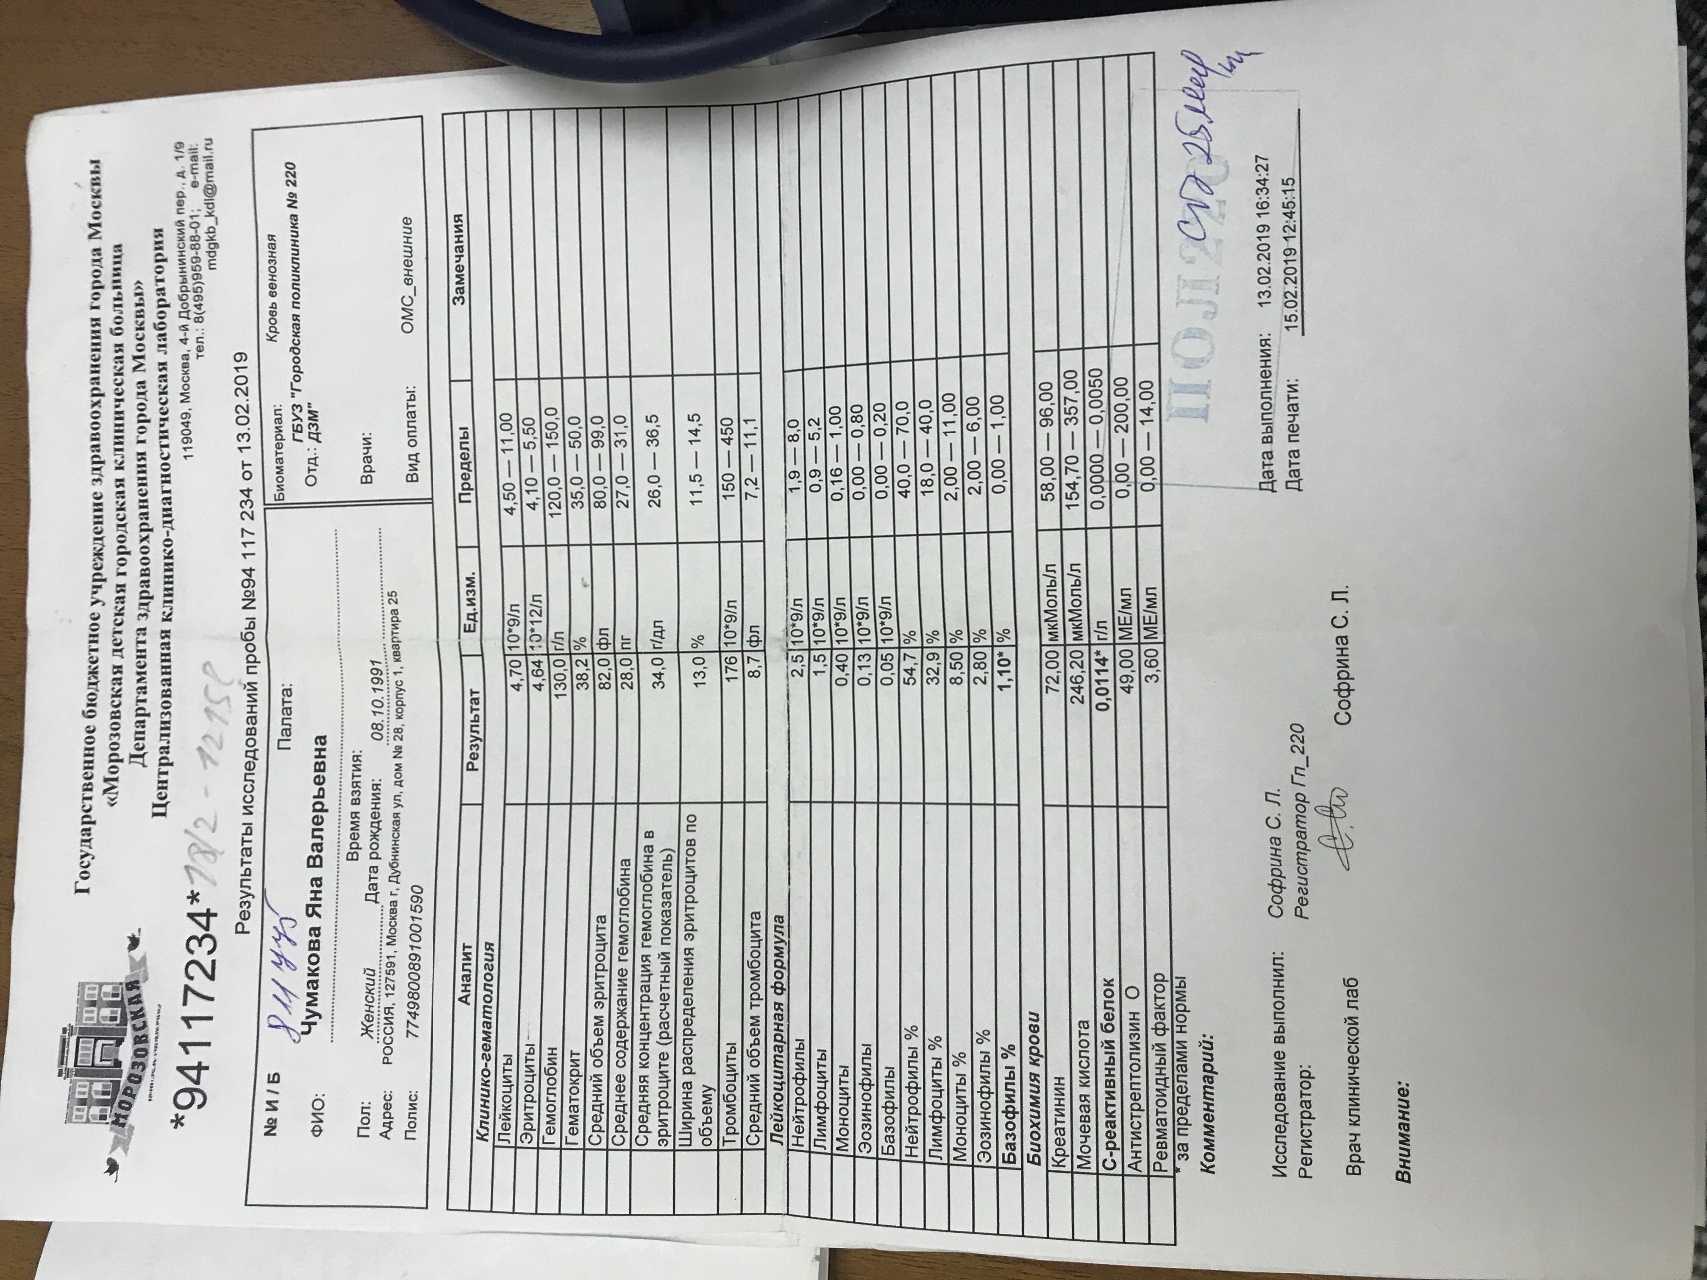 Государственное бюджетное учреждение здравоохранения города Москвы
«Морозовская детская городская клиническая больница
Департамента здравоохранения города Москвы»
Централизованная клинико-диагностическая лаборатория
119049, Москва, 4-й Добрынинский пер., д. 1/9
тел.: 8(495)959-88-01; e-mail:
mdgkb_kdl@mail.ru
МОРОЗОВСКАЯ
*94117234*
Результаты исследований пробы №94 117 234 от 13.02.2019
№ И / Б Палата:
ФИО: Чумакова Яна Валерьевна
Время взятия:
Пол: Женский Дата рождения: 08.10.1991
Адрес: РОССИЯ, 127591, Москва г, Дубнинская ул, дом № 28, корпус 1, квартира 25
Полис: 7749800891001590
Биоматериал: Кровь венозная
Отд.: ГБУЗ "Городская поликлиника № 220 ДЗМ"
Врачи:
Вид оплаты: ОМС_внешние
Аналит Результат Ед.изм. Пределы Замечания
Клинико-гематология
Лейкоциты 4,70 10*9/л 4,50 — 11,00
Эритроциты 4,64 10*12/л 4,10 — 5,50
Гемоглобин 130,0 г/л 120,0 — 150,0
Гематокрит 38,2 % 35,0 — 50,0
Средний объем эритроцита 82,0 фл 80,0 — 99,0
Среднее содержание гемоглобина 28,0 пг 27,0 — 31,0
Средняя концентрация гемоглобина в эритроците (расчетный показатель) 34,0 г/дл 26,0 — 36,5
Ширина распределения эритроцитов по объему 13,0 % 11,5 — 14,5
Тромбоциты 176 10*9/л 150 — 450
Средний объем тромбоцита 8,7 фл 7,2 — 11,1
Лейкоцитарная формула
Нейтрофилы 2,5 10*9/л 1,9 — 8,0
Лимфоциты 1,5 10*9/л 0,9 — 5,2
Моноциты 0,40 10*9/л 0,16 — 1,00
Эозинофилы 0,13 10*9/л 0,00 — 0,80
Базофилы 0,05 10*9/л 0,00 — 0,20
Нейтрофилы % 54,7 % 40,0 — 70,0
Лимфоциты % 32,9 % 18,0 — 40,0
Моноциты % 8,50 % 2,00 — 11,00
Эозинофилы % 2,80 % 2,00 — 6,00
Базофилы % 1,10* % 0,00 — 1,00
Биохимия крови
Креатинин 72,00 мкМоль/л 58,00 — 96,00
Мочевая кислота 246,20 мкМоль/л 154,70 — 357,00
С-реактивный белок 0,0114* г/л 0,0000 — 0,0050
Антистрептолизин О 49,00 МЕ/мл 0,00 — 200,00
Ревматоидный фактор 3,60 МЕ/мл 0,00 — 14,00
* за пределами нормы
Комментарий:
ПОЛ 220
Исследование выполнил: Софрина С. Л. Дата выполнения: 13.02.2019 16:34:27
Регистратор: Регистратор Гп_220 Дата печати: 15.02.2019 12:45:15
Врач клинической лаб Софрина С. Л.
Внимание: